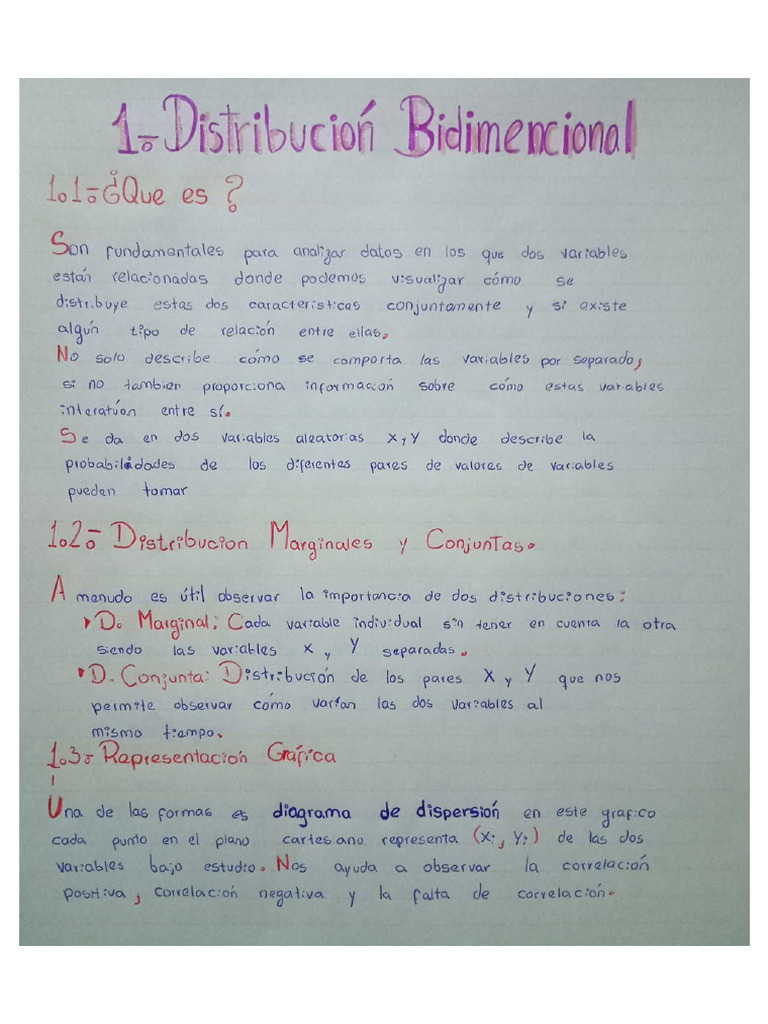 1.- Distribución Bidimencional
1.1-¿Que es?
Son fundamentales para analizar datos en los que dos variables
están relacionadas donde podemos visualizar cómo se
distribuye estas dos caracteristicas conjuntamente y si existe
algún tipo de relación entre ellas.
No solo describe cómo se comporta las variables por separado,
si no tambien proporciona información sobre cómo estas variables
interatúan entre sí.
Se da en dos variables aleatorias X y Y donde describe la
probabilidades de los diferentes pares de valores de variables
pueden tomar
1.2.- Distribucion Marginales y Conjuntas.
A menudo es útil observar la importancia de dos distribuciones:
D. Marginal: Cada variable individual sin tener en cuenta la otra
siendo las variables X y Y separadas.
D- Conjunta: Distribución de los pares X y Y que nos
permite observar como varían las dos variables al
mismo tiempo.
1.3- Representación Gráfica
Una de las formas es diagrama de dispersión en este grafico
cada punto en el plano cartesiano representa (Xi, Yi) de las dos
variables bajo estudio. Nos ayuda a observar la correlación
positiva, correlación negativa y la falta de correlación.